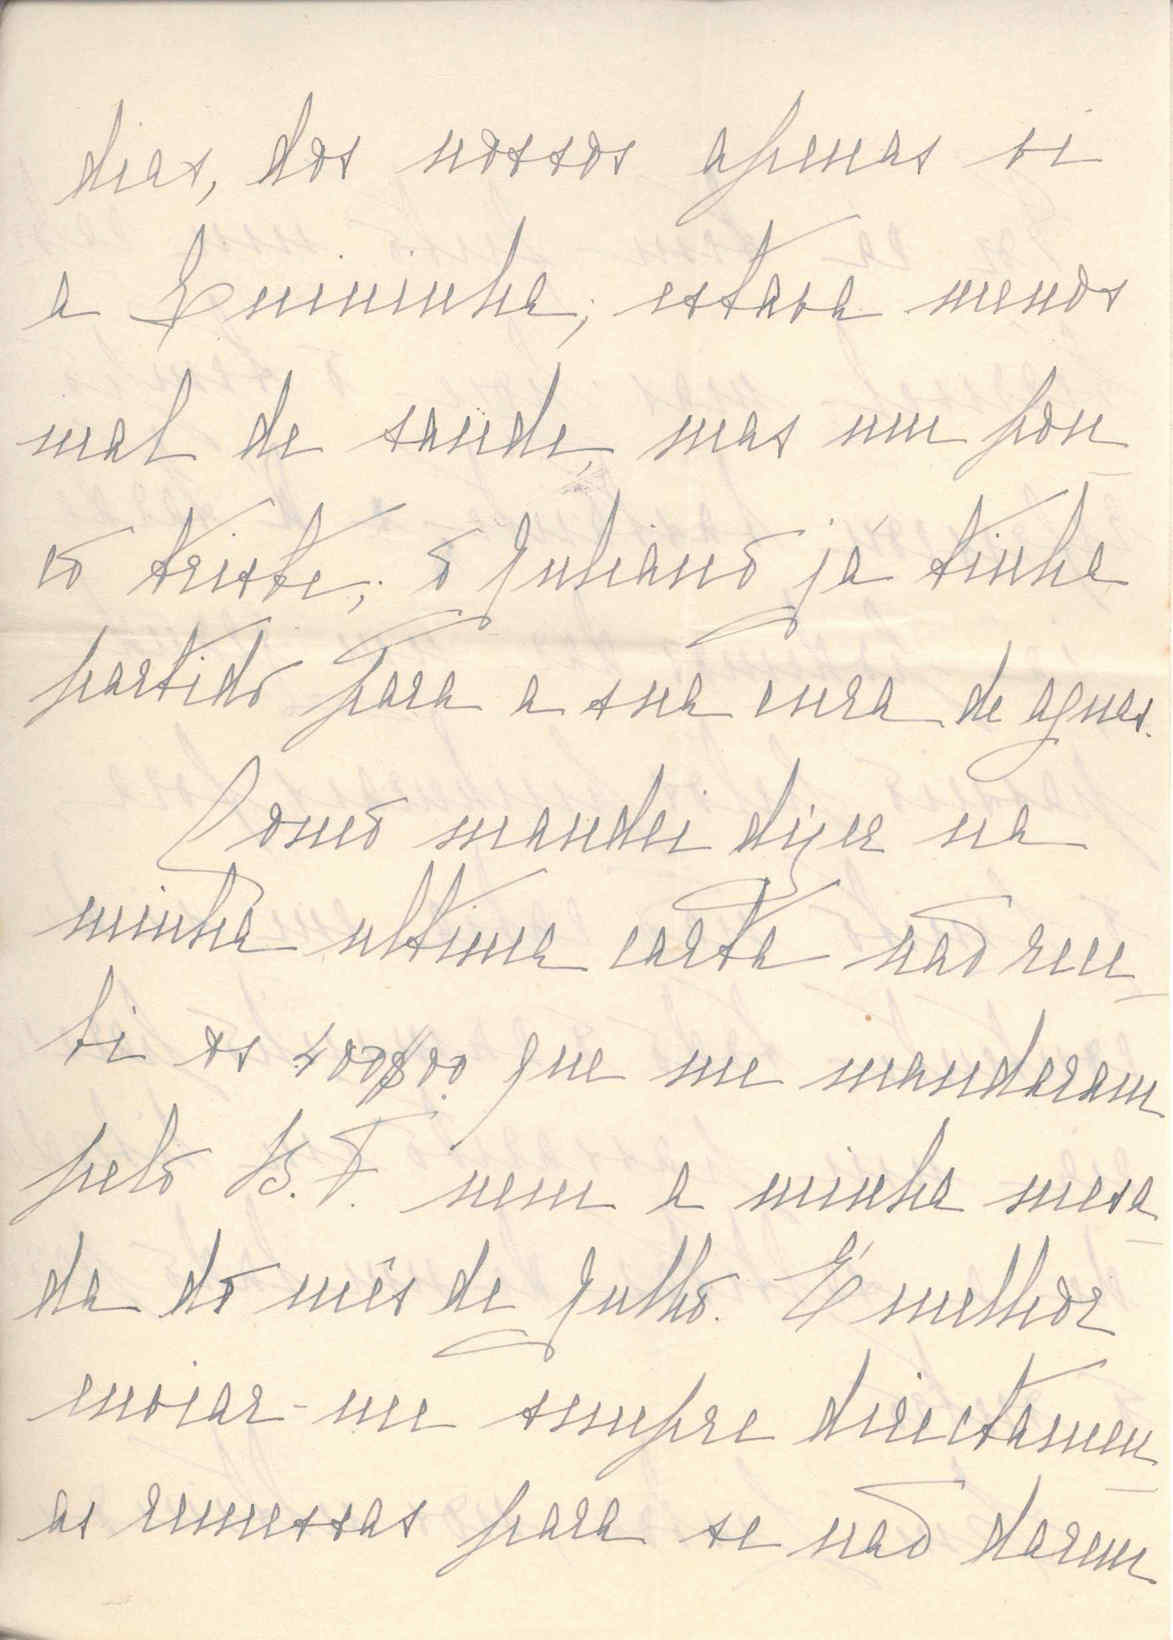 dias, dos nossos apenas vi
a Enininha; estava menos
mal de saude, mas um pou
co triste; o Juliano já tinha
partido para a sua cura de aguas.
Como mandei dizer na
minha ultima carta não rece
bi os 400$00 que me mandaram
pelo B. F. nem a minha mesa
da do mês de Julho. É melhor
enviar-me sempre directamen
as remessas para se não darem